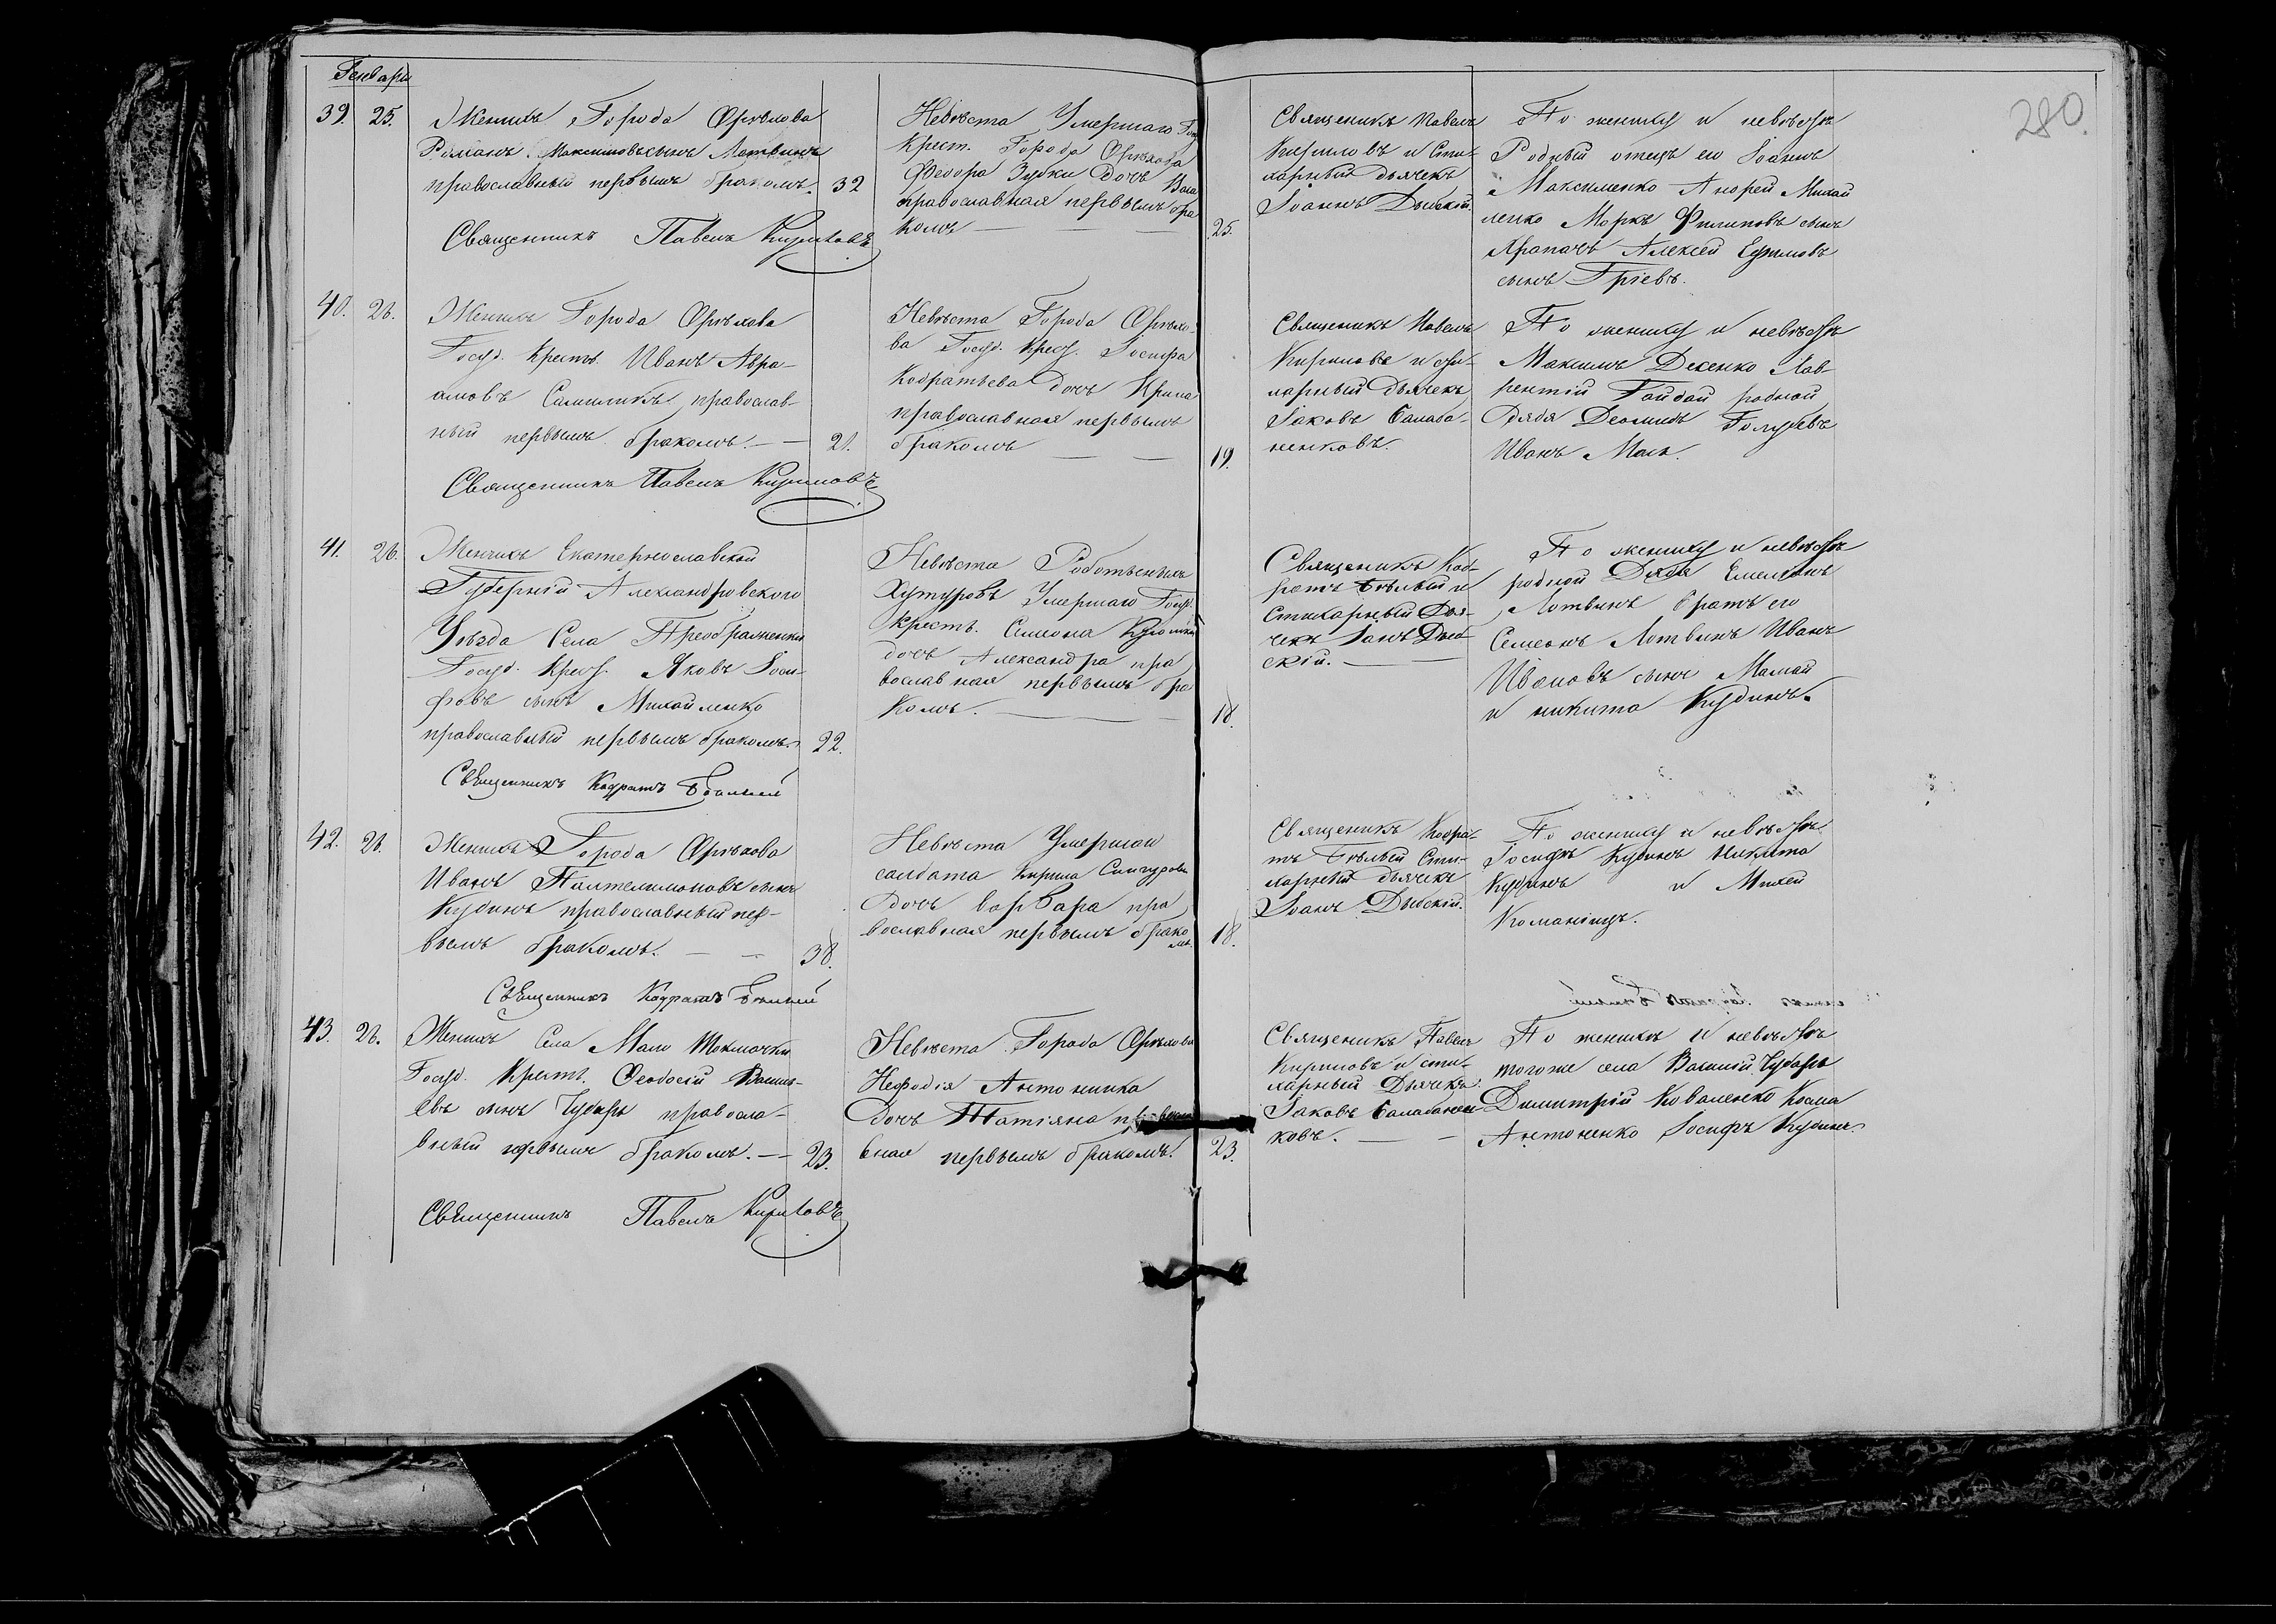 Генваря
280.
39. 25. Женихъ Города Орѣхова
Романъ Максимовъ сынъ Мотвинъ
православный первымъ бракомъ. 32
Священникъ Павелъ Кириловъ
Невѣста Умершаго Госу
Крест. Города Орѣхова
Федора Зубки дочь Васа
православная первымъ бра
комъ
25.
Священикъ Павелъ
Кириловъ и Сти-
харный дьячекъ
Іоаннъ Дыбскій.
По жениху и невѣстѣ
Родный отецъ его Іоаннъ
Максименко Андрей Михай
ленко Маркъ Филиповъ сынъ
Храпачъ Алексей Ефимовъ
сынъ Гріевъ.
40. 26. Женихъ Города Орѣхова
Госуд. Крестъ. Иванъ Авра-
амовъ православ-
ный первымъ бракомъ. 21.
Священникъ Павелъ Кириловъ
Невѣста Города Орѣхо-
ва Госуд. Крест. Іосифа
Кодратьева дочь Ирина
православная первымъ
бракомъ
19.
Священикъ Павелъ
Кириловъ и сти-
харный дьячекъ
Іаковъ Балаба-
ненковъ.
По жениху и невѣстѣ
Максимъ Дехенко Лав-
рентій Гайдай родной
дядя Деомидъ Голубевъ
Иванъ
41. 26. Женихъ Екатеринославской
Губерніи Александровского
Уѣзда Села Преображенки
Госуд. Крест. Яковъ Іоси-
фовъ сынъ Михайленко
православный первымъ бракомъ. 22.
Священникъ Кодратъ Бѣлый
Невѣста
Хутуровъ Умершаго Госуд.
Крестъ. Семеона
дочь Александра пра
вославная первымъ бра
комъ.
18.
Священикъ Код-
ратъ Бѣлый и
Стихарный Дья-
чекъ Іоанъ Дыб-
скій.
По жениху и невѣстѣ
родной Дядя Емельянъ
Лотвинъ братъ его
Семеонъ Лотвинъ Иванъ
Ивановъ сынъ Мамай
и никита Кудинъ.
42. 26. Женихъ Города Орѣхова
Иванъ Пантелимоновъ сынъ
Кудинъ православный пер-
вымъ бракомъ. 38.
Священникъ Кодратъ Бѣлый
Невѣста Умершаи
салдата Кирила
дочь варвара пра
вославная первымъ брако
мъ.
18.
Священикъ Кодра-
тъ Бѣлый Сти-
харный дьячекъ
Іоанъ Дыбскій.
По жениху и невѣстѣ
Іосифъ Кудинъ Никита
Кудинъ и Михей
Команіецъ.
43. 26. Женихъ Села Мало Токмачки
Госуд. Крест. Феодосій Васил-
евъ сынъ Чубарь правосла-
вный первымъ бракомъ. 23.
Священникъ Павелъ Кириловъ
Невѣста Города Орѣхова
Нефодія Антоника
дочь Татіяна
вная первымъ бракомъ.
23.
Священикъ Павелъ
Кириловъ и сти-
харный Дьячекъ
Іаковъ Балабанен
ковъ.
По жениху и невѣстѣ
тогоже села Василій Чубарь
Димитрій Коваленко Косма
Антоненко Іосифъ Кудинъ.